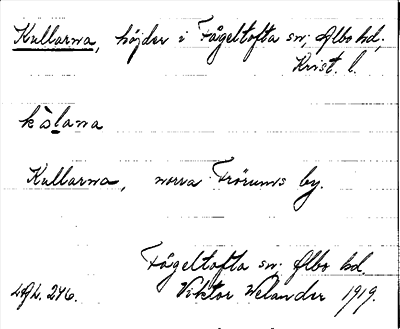 Kullarna, höjder i Fågeltofta sn; Albo hd,
Krist. l.
kàlana
Kullarna, norra Frörums by.
Fågeltofta sn. Albo hd.
LAL. 246. Viktor Welander 1919.